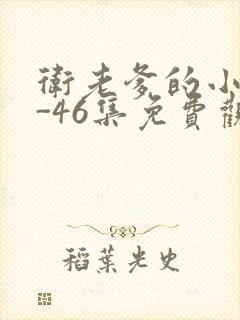 衛老爹的小
-46集免費觀
稻葉光史